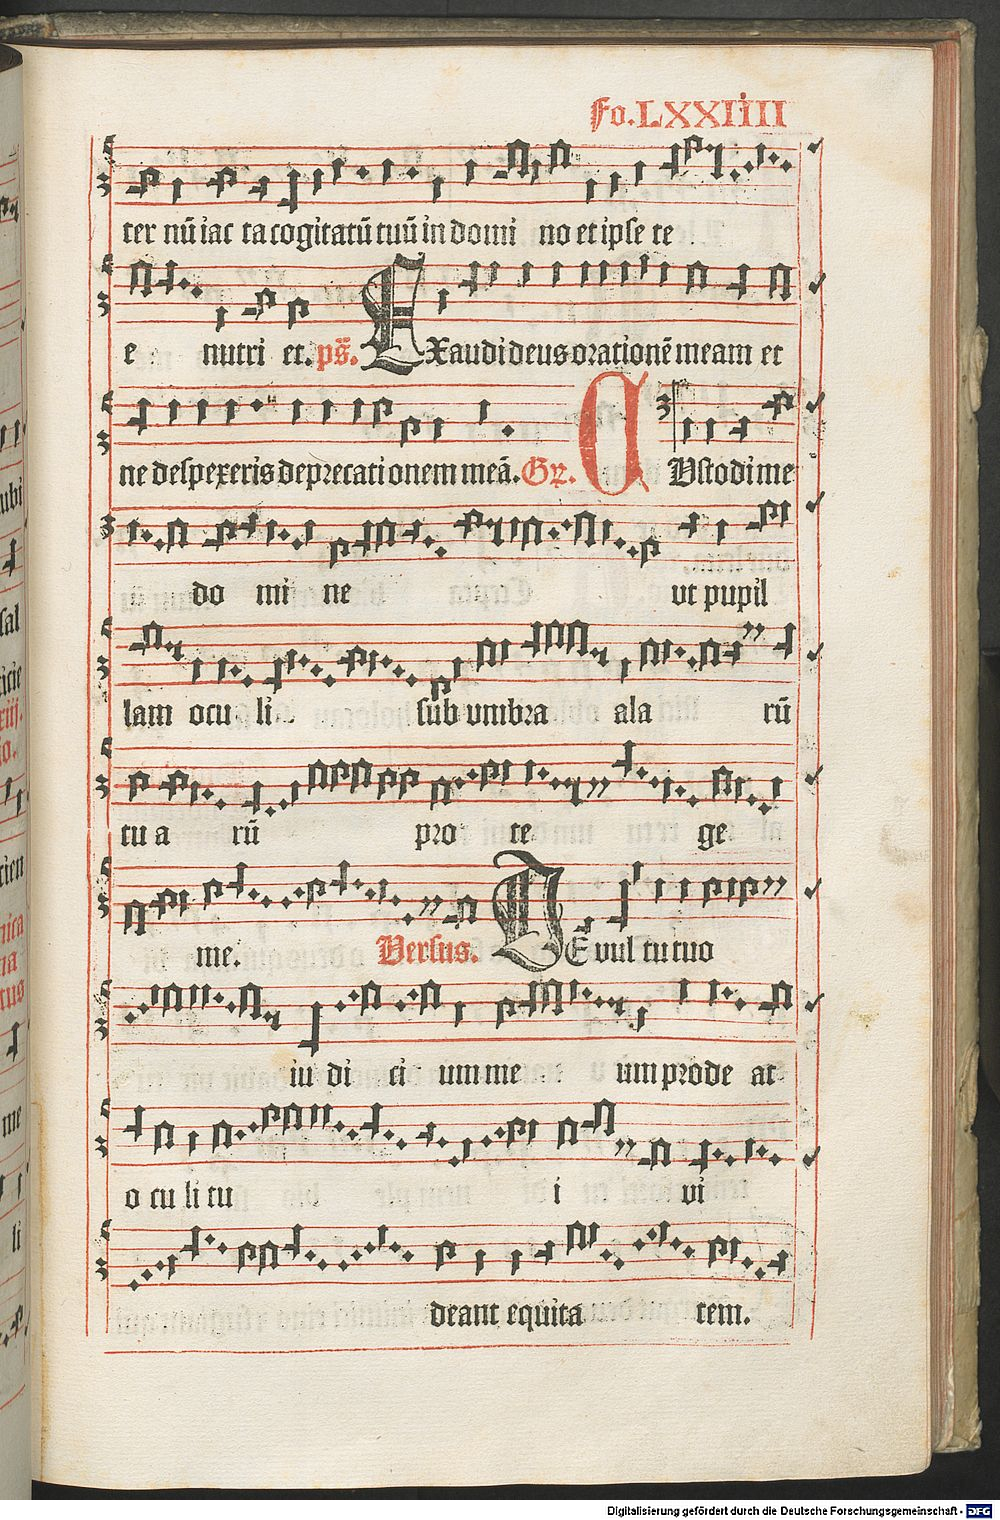 Fo.LXXIIII
ter nū iac ta cogitatū tuū in domi no et ipse te
e nutri et. ps̄. EXaudi deus orationē meam et
ne despexeris deprecati onem meā. Gr. CVstodi me
do mi ne vt pupil
lam ocu li sub vmbra ala rū
tu a rū pro te ge
me. Versus. DE vul tu tuo
iu di ci um me um prode at
o cu li tu i vi
deant equita tem.
Digitalisierung gefördert durch die Deutsche Forschungsgemeinschaft - DFG